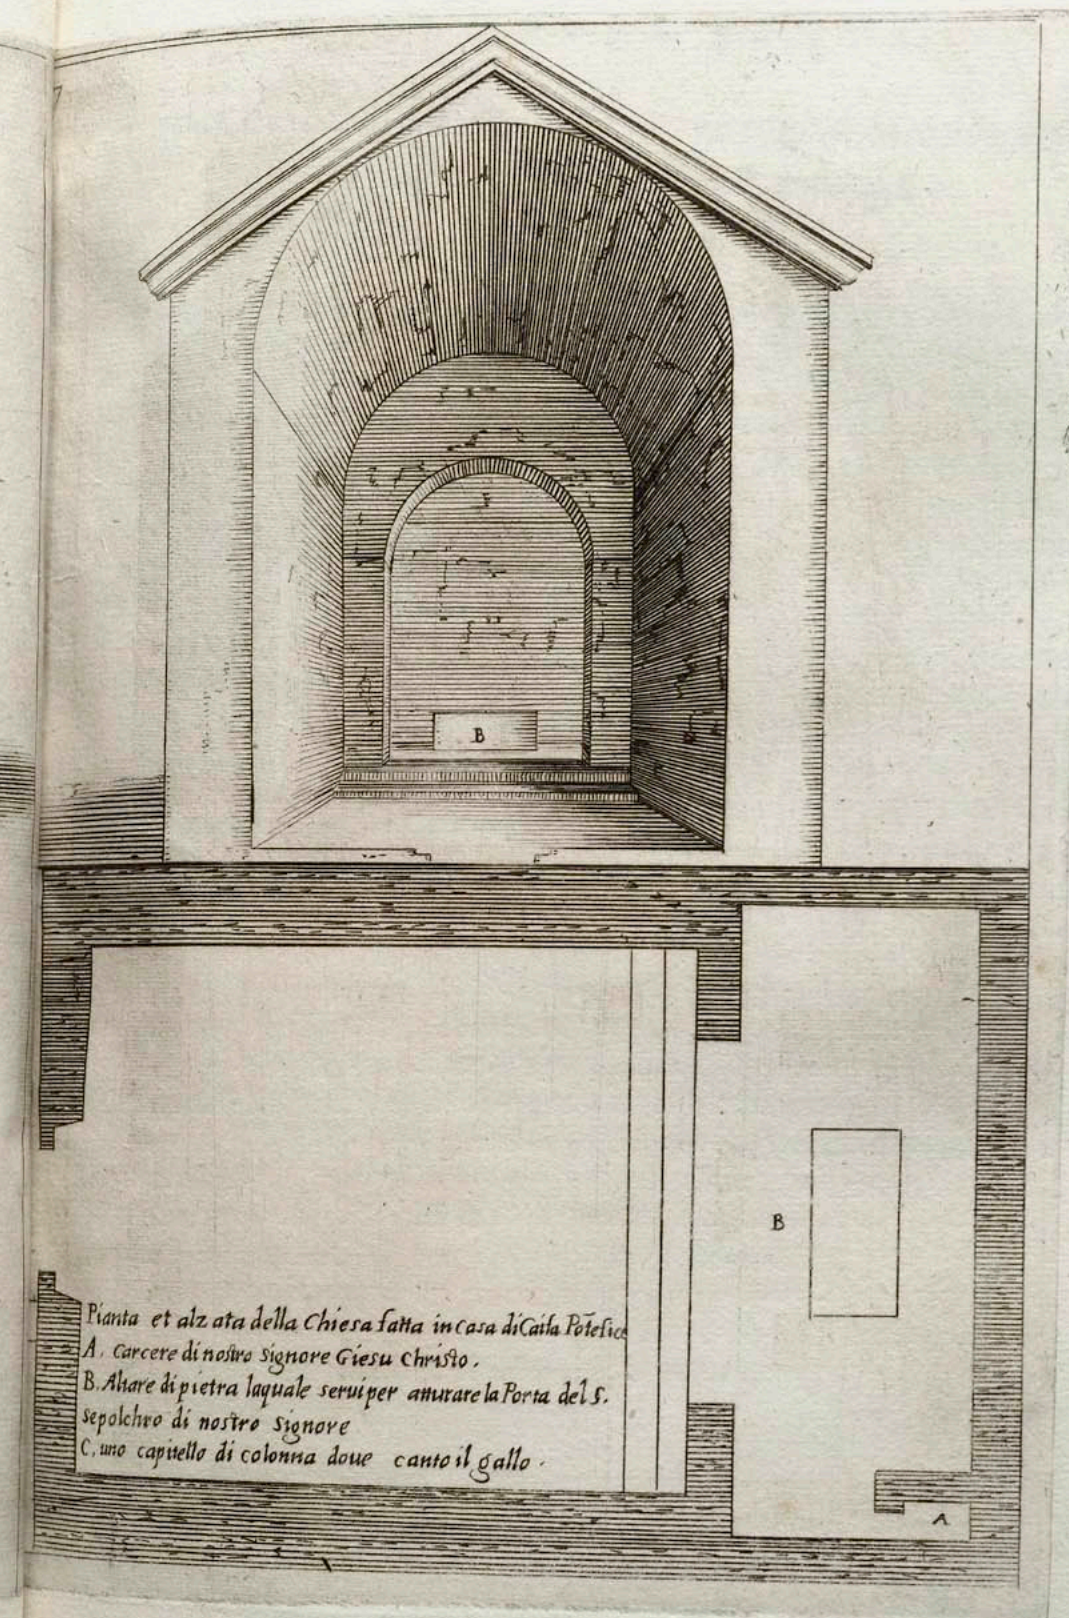 B
B
Pianta et alzata della Chiesa fatta in casa di Caifa Põtefice
A. carcere di nostro Signore Giesu Christo.
B. Altare di pietra laquale serui per atturare la Porta del S.
sepolchro di nostro Signore
C. uno capitello di colonna doue canto il gallo.
A